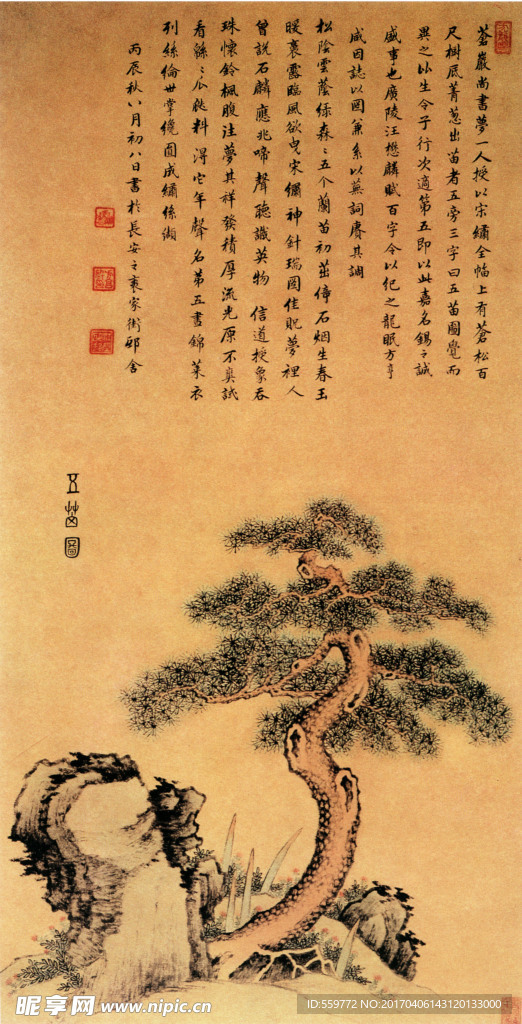 蒼巖尚書夢一人授以宋繡全幅上有蒼松百
尺樹底菁蔥出苗者五旁三字曰五苗圖覺而
異之以生令子行次適第五即以此嘉名錫之誠
盛事也廣陵汪懋麟賦百字令以紀之龍眠方亨
咸因誌以圖兼系以蕪詞賡其調
松陰雲蔭綠森森五个蘭苗初茁倚石烟生春玉
暖裛露臨風欲曳宋繡神針瑞圖佳貺夢裡人
曾說石麟應兆啼聲聽識英物 信道授象吞
珠懷鈴楓腹注夢其祥發積厚流光原不爽試
看緜緜瓜瓞料得它年聲名第五晝錦萊衣
列絲綸世掌纔圖成繡絲纈
丙辰秋八月初八日書於長安之袁家衚邸舍
五苗圖
昵享网 www.nipic.cn
ID:559772 NO:20170406143120133000